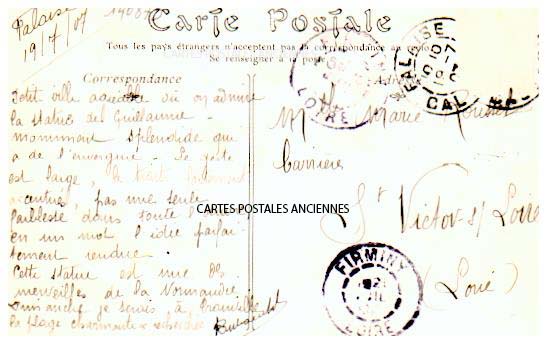 Falaise
19/7/07
14084
Carte Postale
Tous les pays étrangers n'acceptent pas la correspondance au recto
Se renseigner à la poste
Correspondance
Petit ville agréable où on admire
la statue de Guillaume -
monument splendide qui
a de l'envergure - Le geste
est large, le trait
accentué, pas une seule
faiblesse dans toute l'
en un mot l'idée parfai-
tement rendue.
Cette statue est une des
merveilles de la Normandie
Dimanche je serais à Trouville
la plage charmante & recherchée
M Marie
Carrière
St Victor s/ Loire
(Loire)
CARTES POSTALES ANCIENNES
FALAISE
CAL
LOIRE
FIRMINY
LOIRE